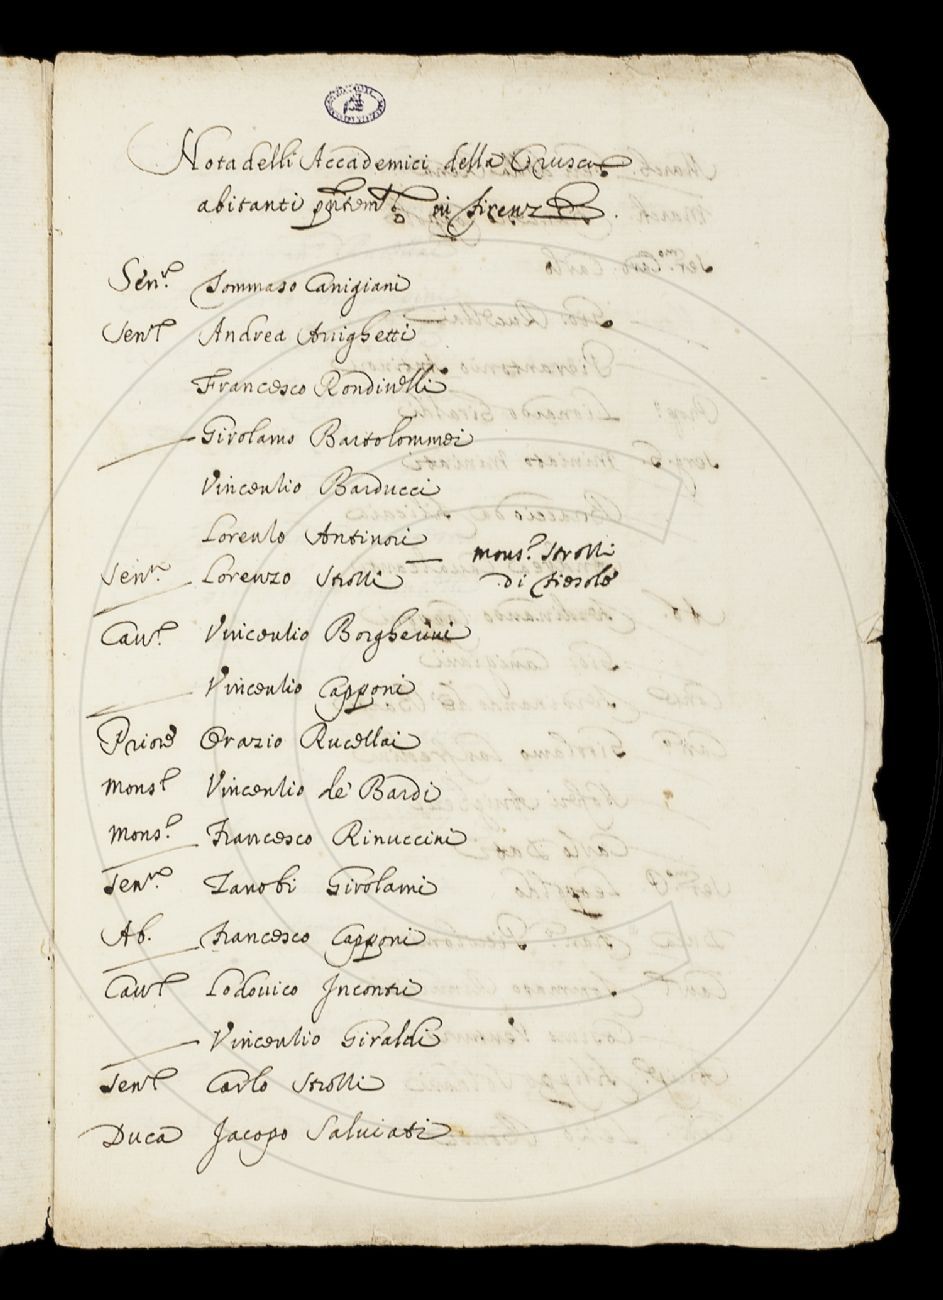 Nota delli Accademici della Crusca
abitanti pñtemte in Firenze.
Senre Tommaso Canigiani
Senre Andrea Arrighetti
Francesco Rondinelli
Girolamo Bartolommei
Vincentio Barducci
Lorentio Antinori
Senre Lorenzo Strozzi — Monsre Strozzi
di Fiesole
Cavre Vincentio Borgherini
Vincentio Capponi
Priore Orazio Rucellai
Monsre Vincentio de' Bardi
Monsre Francesco Rinuccini
Senre Zanobi Girolami
Ab. Francesco Capponi
Cavre Lodovico Incontri
Vincentio Giraldi
Senre Carlo Strozzi
Duca Jacopo Salviati